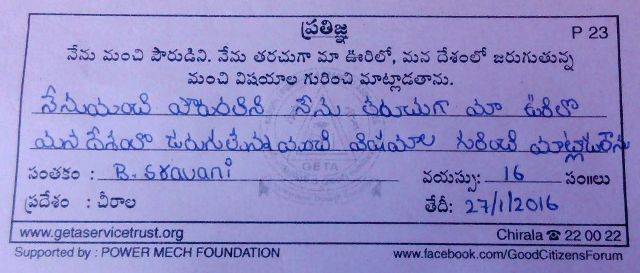 ప్రతిజ్ఞ
P 23
నేను మంచి పౌరుడిని. నేను తరచుగా మా ఊరిలో, మన దేశంలో జరుగుతున్న
మంచి విషయాల గురించి మాట్లాడతాను.
నేనుమంచి పౌరుడిని నేను తరుచుగా మా ఊరిలో
మన దేశంలో జరుగుతున్న మంచి విషయాల గురించి మాట్లాడతాను
GETA
సంతకం : B. Sravani వయస్సు: 16 సం॥లు
ప్రదేశం : చీరాల తేదీ: 27/1/2016
www.getaservicetrust.org Chirala ☎ 22 00 22
Supported by : POWER MECH FOUNDATION www.facebook.com/GoodCitizensForum